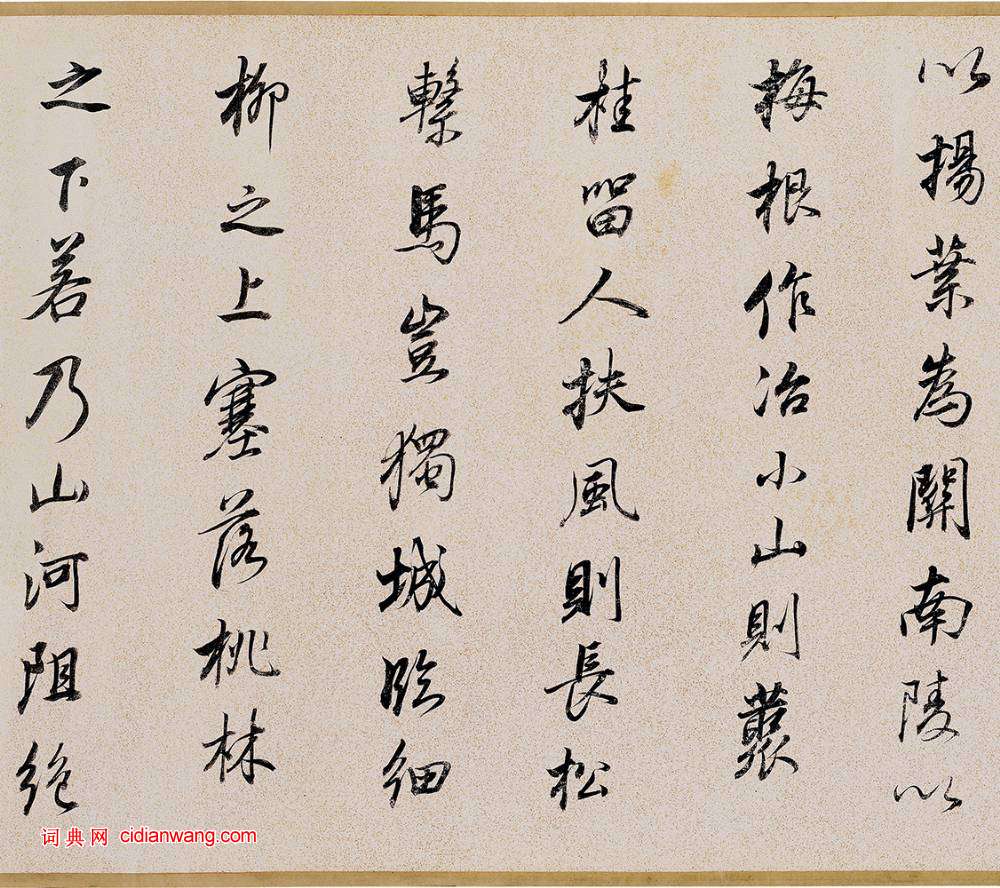 以楊葉為關南陵以
梅根作冶小山則叢
桂留人扶風則長松
繫馬豈獨城臨細
柳之上塞落桃林
之下若乃山河阻絕
词典网 cidianwang.com